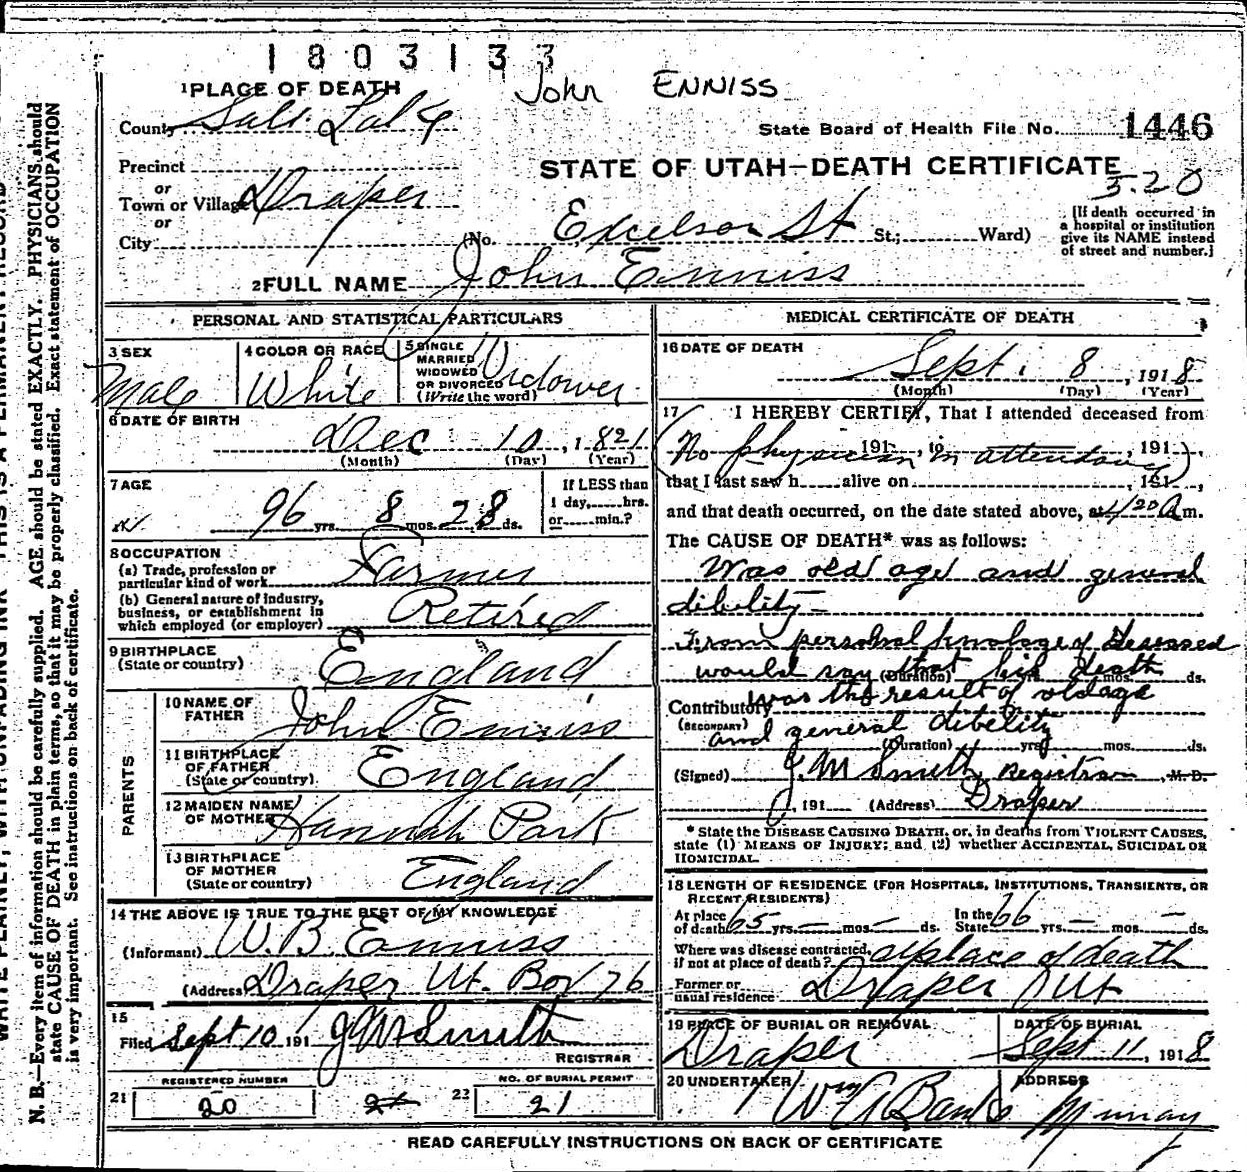 1803133
John ENNISS
1 PLACE OF DEATH
County Salt Lake
State Board of Health File No. 1446
Precinct
STATE OF UTAH—DEATH CERTIFICATE
5.20
or
Town or Village Draper
or
City (No. Excelsor St St.; Ward)
[If death occurred in
a hospital or institution
give its NAME instead
of street and number.]
2 FULL NAME John Enniss
PERSONAL AND STATISTICAL PARTICULARS
3 SEX
Male
4 COLOR OR RACE
White
5 SINGLE
MARRIED
WIDOWED
OR DIVORCED
(Write the word)
Widower
6 DATE OF BIRTH
Dec 10, 1821
(Month) (Day) (Year)
7 AGE
96 yrs. 8 mos. 28 ds.
If LESS than
1 day, hrs.
or min.?
8 OCCUPATION
(a) Trade, profession or
particular kind of work Farmer
(b) General nature of industry,
business, or establishment in
which employed (or employer) Retired
9 BIRTHPLACE
(State or country) England
PARENTS
10 NAME OF
FATHER John Enniss
11 BIRTHPLACE
OF FATHER
(State or country) England
12 MAIDEN NAME
OF MOTHER Hannah Park
13 BIRTHPLACE
OF MOTHER
(State or country) England
14 THE ABOVE IS TRUE TO THE BEST OF MY KNOWLEDGE
(Informant) W. B. Enniss
(Address) Draper Ut. Box 76
15
Filed Sept 10 191 J M Smith
REGISTRAR
REGISTERED NUMBER
21 20 21
NO. OF BURIAL PERMIT
22 21
MEDICAL CERTIFICATE OF DEATH
16 DATE OF DEATH
Sept. 8, 1918
(Month) (Day) (Year)
17 I HEREBY CERTIFY, That I attended deceased from
(No physician in attendance) 191 , to , 191 ,
that I last saw h alive on , 191 ,
and that death occurred, on the date stated above, at 4/20 A m.
The CAUSE OF DEATH* was as follows:
Was old age and general
dibelity—
From personal knolage of deseased
would say that his death
(Duration) mos. ds.
Contributory was the result of old age
(SECONDARY) and general dibelity
(Duration) yrs. mos. ds.
(Signed) J. M Smith Registrar M.D.
, 191 (Address) Draper
* State the DISEASE CAUSING DEATH, or, in deaths from VIOLENT CAUSES,
state (1) MEANS OF INJURY; and (2) whether ACCIDENTAL, SUICIDAL OR
HOMICIDAL.
18 LENGTH OF RESIDENCE (FOR HOSPITALS, INSTITUTIONS, TRANSIENTS, OR
RECENT RESIDENTS)
At place
of death 65 yrs. — mos. — ds.
In the
State 66 yrs. — mos. — ds.
Where was disease contracted,
if not at place of death? at place of death
Former or
usual residence Draper Ut
19 PLACE OF BURIAL OR REMOVAL
Draper
DATE OF BURIAL
Sept 11, 1918
20 UNDERTAKER
Wm A Banks
ADDRESS
Murray
READ CAREFULLY INSTRUCTIONS ON BACK OF CERTIFICATE
N. B.—Every item of information should be carefully supplied. AGE should be stated EXACTLY. PHYSICIANS should
state CAUSE OF DEATH in plain terms, so that it may be properly classified. Exact statement of OCCUPATION
is very important. See instructions on back of certificate.